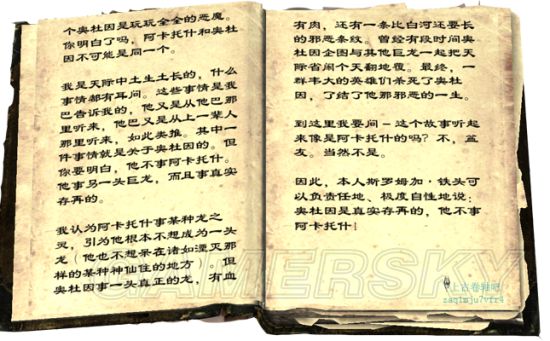 个奥杜因是玩玩全全的恶魔。
你明白了吗，阿卡托什和奥杜
因不可能是同一个。
我是天际中土生土长的，什么
事情都有耳闻。这些事情是我
巴告诉我的，他又是从他巴那
里听来，他巴又是从上一辈人
那里听来，如此类推。其中一
件事情就是关于奥杜因的。但
你要明白，他不事阿卡托什。
他事另一头巨龙，而且事真实
存再的。
我认为阿卡托什事某种龙之
灵，引为他根本不想成为一头
龙（他也不想呆在诸如湮灭那
样的某种神仙住的地方）。但
奥杜因事一头真正的龙，有血
有肉，还有一条比白河还要长
的邪恶条纹。曾经有段时间奥
杜因企图与其他巨龙一起把天
际省闹个天翻地覆。最终，一
群韦大的英雄们杀死了奥杜
因，了结了他那邪恶的一生。
到这里我要问－这个故事听起
来像是阿卡托什的吗？不，盆
友。当然不是。
因此，本人斯罗姆加·铁头可
以负责任地、极度自性地说：
奥杜因是真实存再的，他不事
阿卡托什！
GAMERSKY
上古卷轴吧
zaq1mju7vfr4